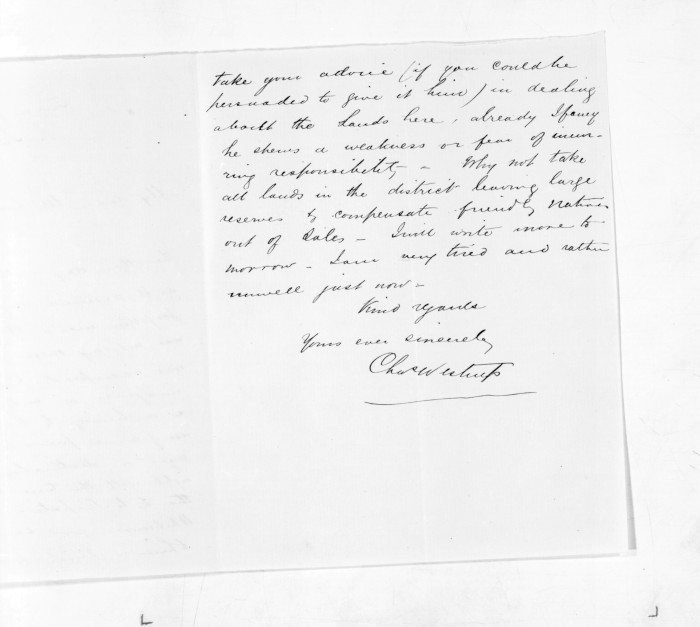 take your advice (if you could be
persuaded to give it him) in dealing
about the Lands here, already I fancy
he shews a weakness or fear of incur-
ring responsibility – Why not take
all lands in the district leaving large
reserves & compensate friendly natives
out of Sales – I will write more to
morrow – I am very tired and rather
unwell just now –
Kind regards
Yours ever sincerely
Chas Westrup